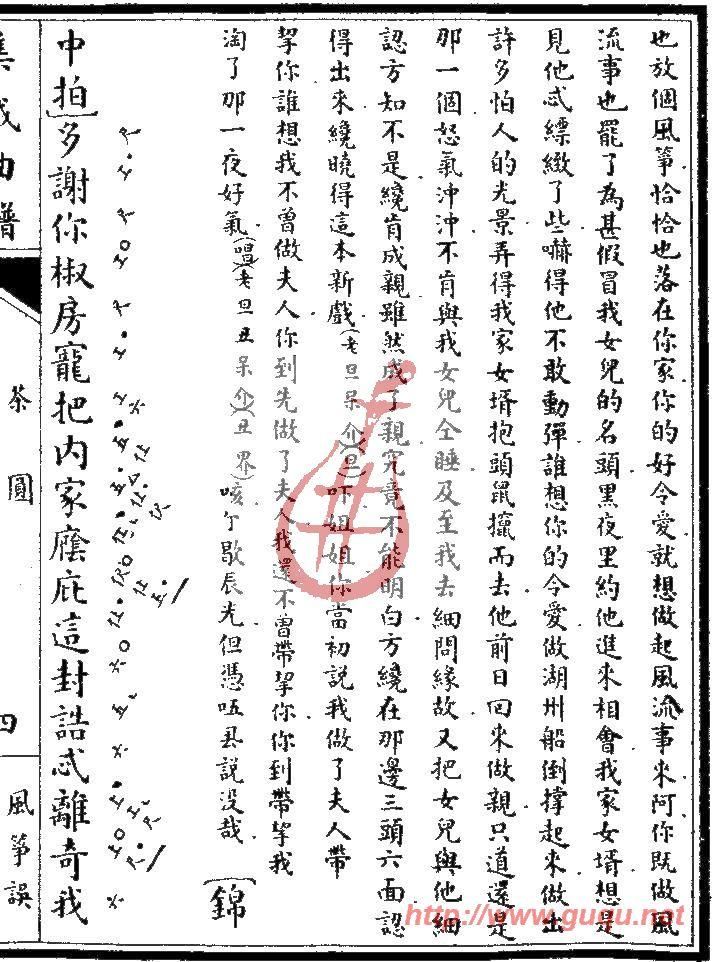 也放個風箏恰恰也落在你家你的好令愛就想做起風流事來阿你既做風
流事也罷了為甚假冒我女兒的名頭黑夜里約他進來相會我家女壻想是
見他忒縹緻了些嚇得他不敢動彈誰想你的令愛做湖州船倒撑起來做出
許多怕人的光景弄得我家女壻抱頭鼠攛而去他前日回來做親只道還是
那一個怒氣沖沖不肯與我女兒仝睡及至我去細問緣故又把女兒與他細
認方知不是纔肯成親雖然成了親究竟不能明白方纔在那邊三頭六面認
得出來纔曉得這本新戲(老旦呆介)(旦)吓姐姐你當初說我做了夫人帶
挈你誰想我不曾做夫人你到先做了夫人我還不曾帶挈你你到帶挈我
淘了那一夜好氣(唱)(老旦丑呆介)(丑界)咳个歇辰光但憑㕶㑚說没哉 錦
中拍 多謝你椒房寵把内家廕庇這封誥忒離奇我
集成曲譜 茶圓 四 風箏誤
http://www.gugu.net